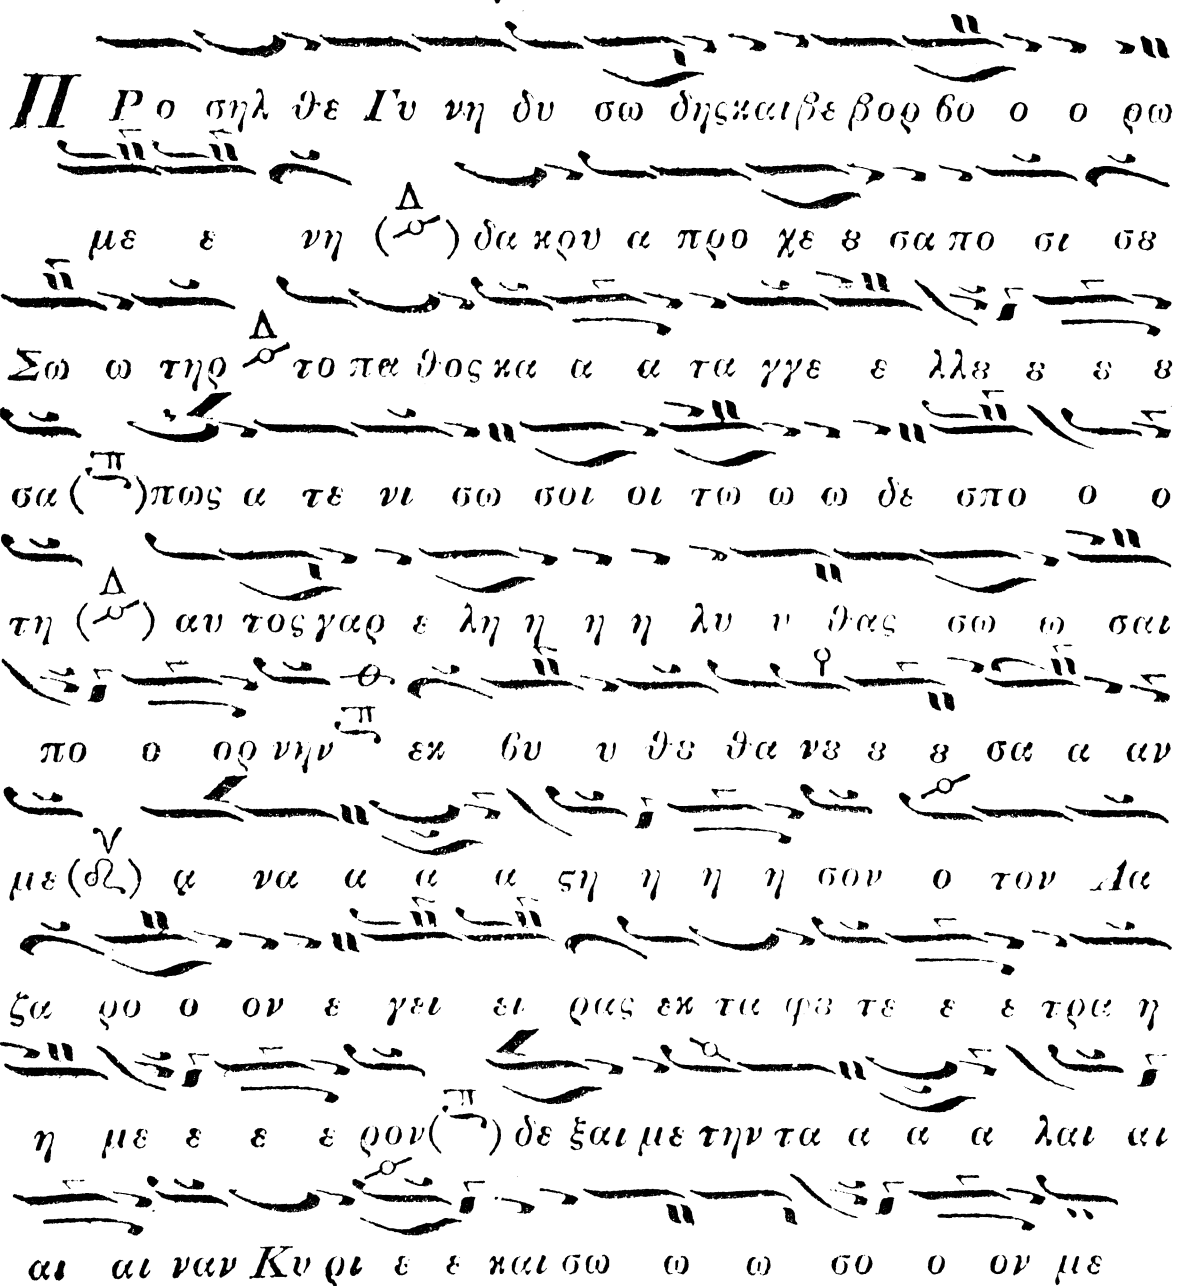 Π Ρ ο σηλ θε Γυ νη δυ σω δης και βε βορ βο ο ο ρω
με ε νη (Δ) δα κρυ α προ χε ȣ σα πο σι σȣ
Σω ω τηρ Δ το πα θος κα α α τα γγε ε λλȣ ȣ ε ȣ
σα (π) πως α τε νι σω σοι οι τω ω ω δε σπο ο ο
τη (Δ) αυ τος γαρ ε λη η η η λυ υ θας σω ω σαι
πο ο ορ νην π εκ βυ υ θȣ θα νȣ ȣ ȣ σα α αν
με (ν) α να α α α ςη η η η σον ο τον Λα
ζα ρο ο ον ε γει ει ρας εκ τα φȣ τε ε ε τρα η
η με ε ε ε ρον (π) δε ξαι με την τα α α α λαι αι
αι αι ναν Κυ ρι ε ε και σω ω ω σο ο ον με